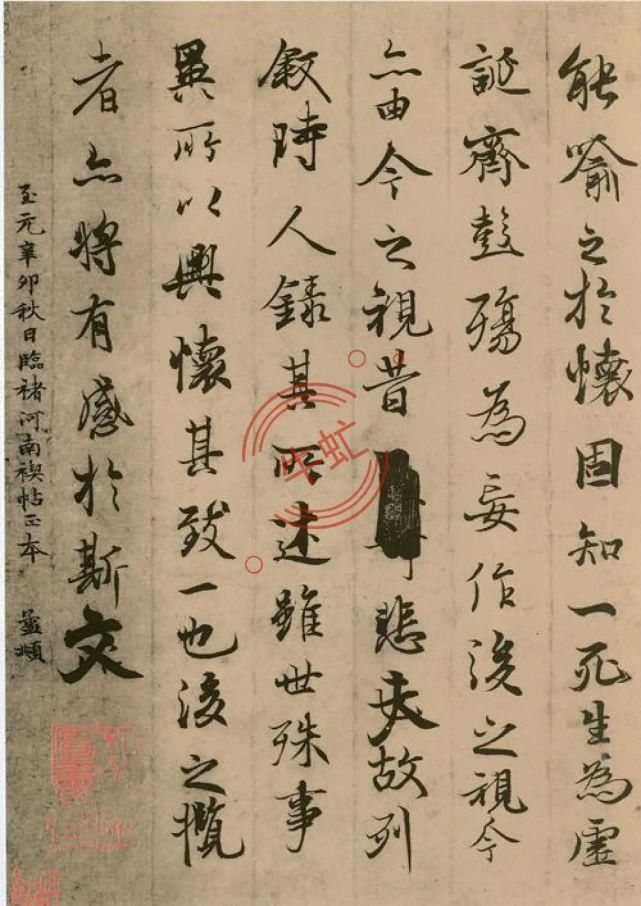 能喻之於懷固知一死生為虛
誕齊彭殤為妄作後之視今
亦由今之視昔 悲夫故列
敘時人錄其所述雖世殊事
異所以興懷其致一也後之攬
者亦將有感於斯文
至元辛卯秋日臨褚河南禊帖正本 孟頫